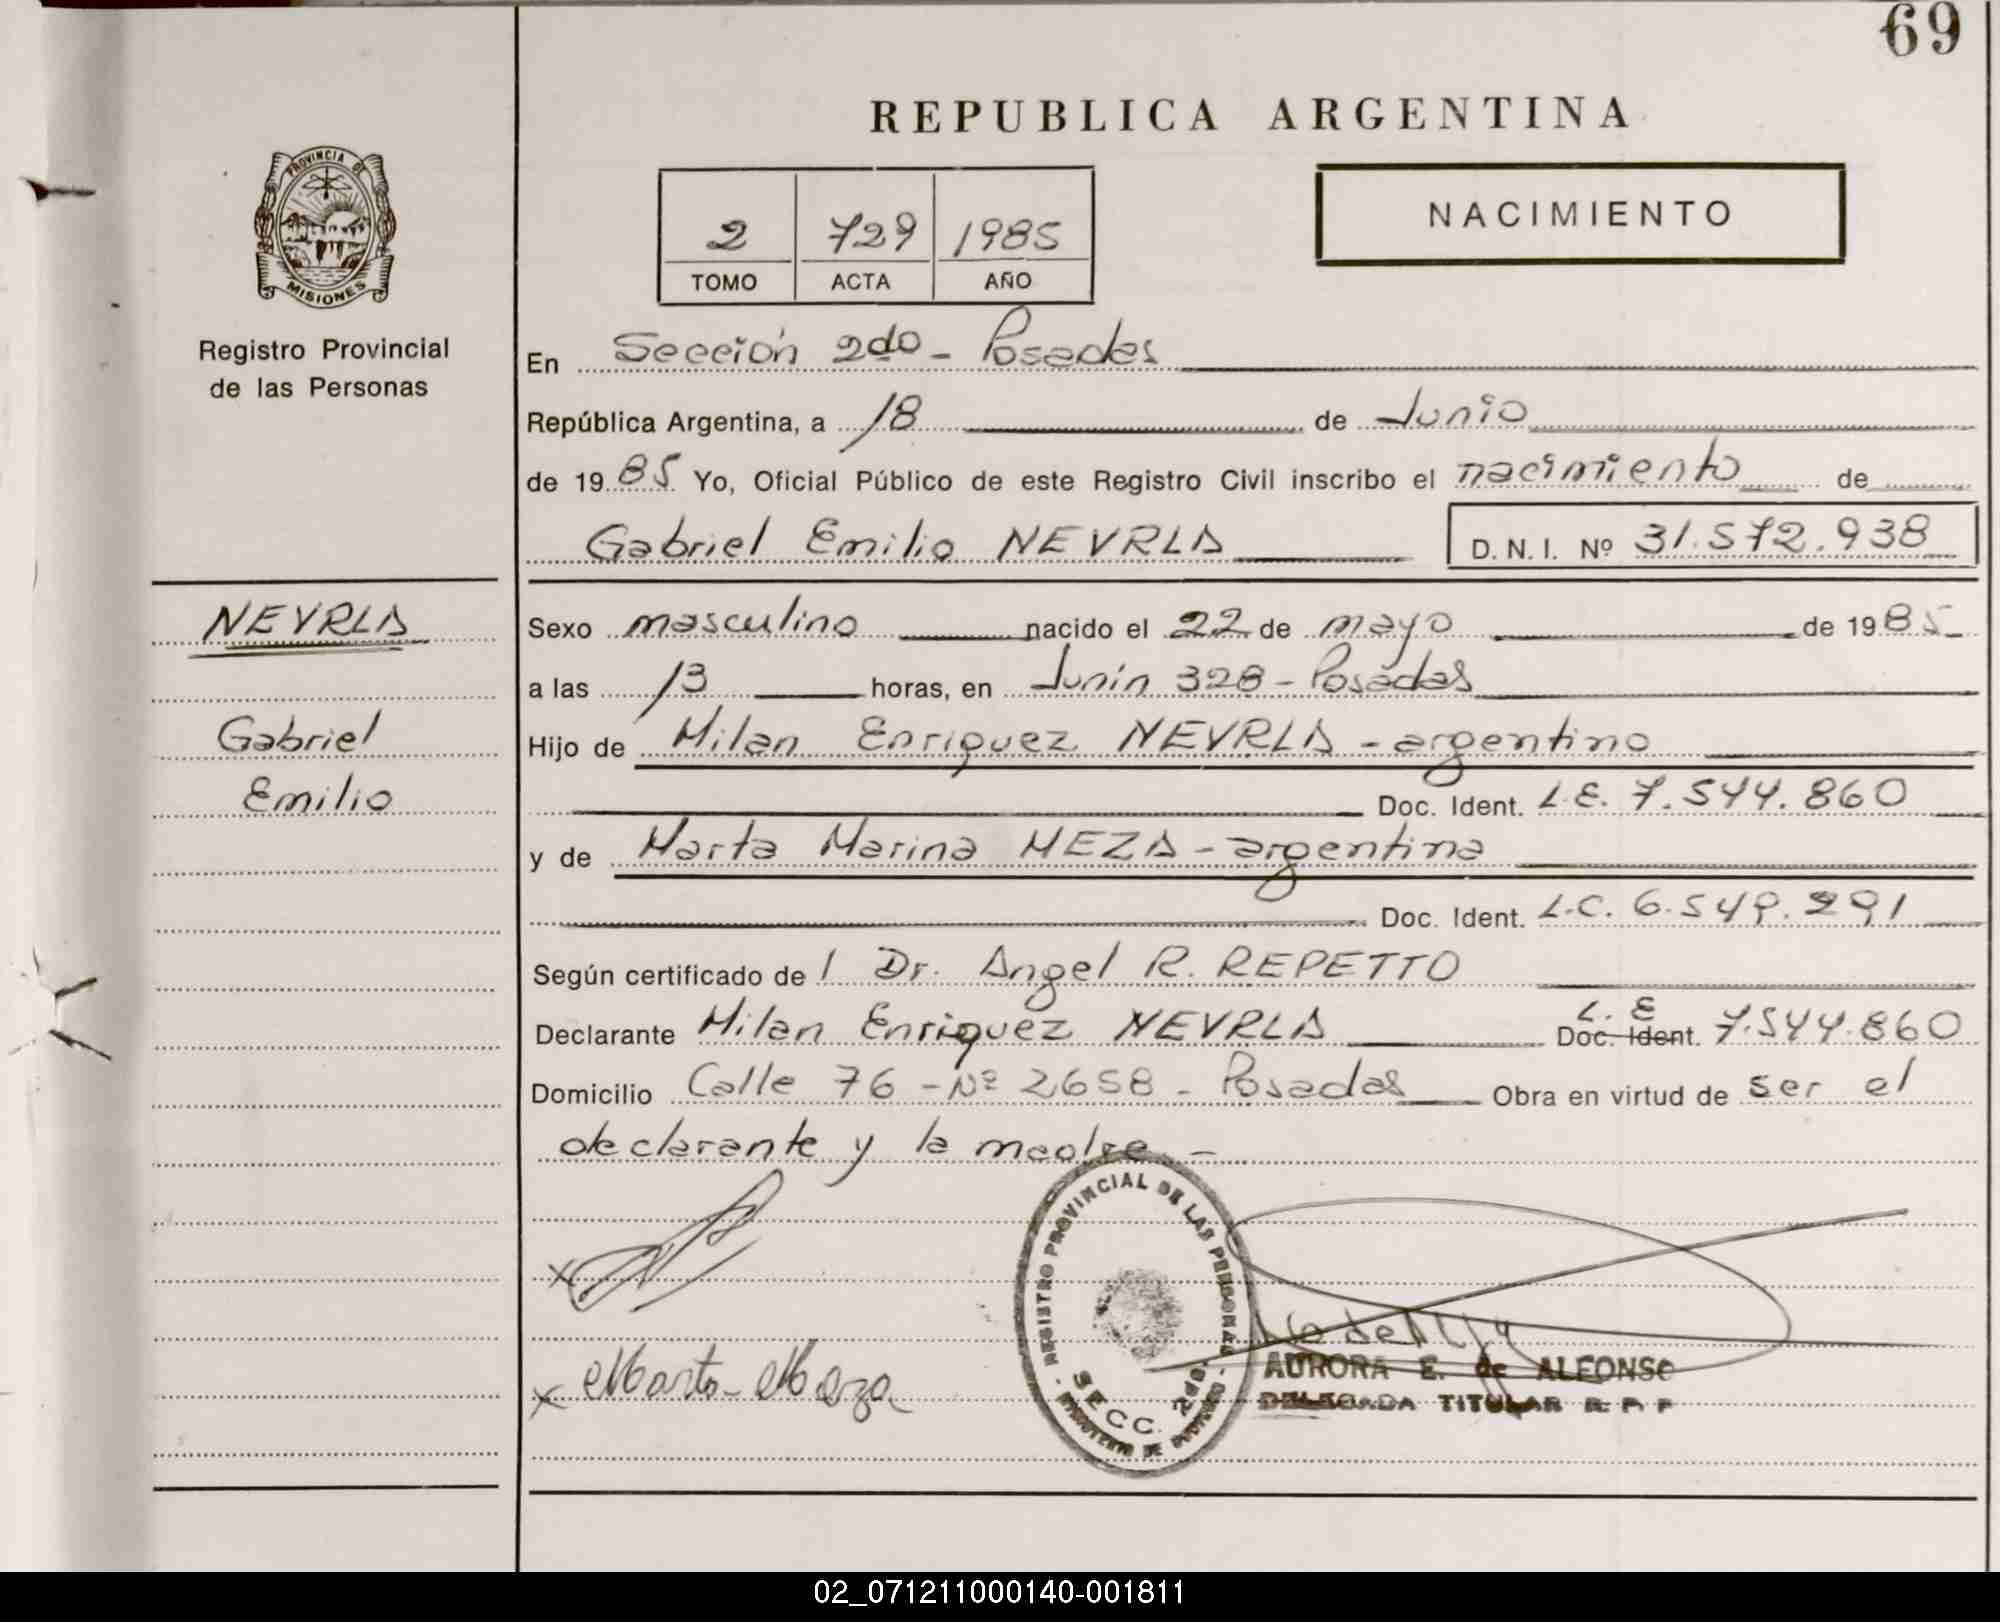 69
REPUBLICA ARGENTINA
PROVINCIA DE
MISIONES
2 729 1985
TOMO ACTA AÑO
NACIMIENTO
Registro Provincial
de las Personas
En Sección 2do - Posadas
República Argentina, a 18 de Junio
de 19 85 Yo, Oficial Público de este Registro Civil inscribo el nacimiento de
Gabriel Emilio NEVRLA D. N. I. Nº 31.572.938
NEVRLA
Gabriel
Emilio
Sexo masculino nacido el 22 de mayo de 19 85
a las 13 horas, en Junín 328 - Posadas
Hijo de Milan Enriquez NEVRLA - argentino
Doc. Ident. L.E. 7.544.860
y de Marta Marina MEZA - argentina
Doc. Ident. L.C. 6.549.291
Según certificado de l Dr. Angel R. REPETTO
Declarante Milan Enriquez NEVRLA L.E Doc. Ident. 7.544.860
Domicilio Calle 76 - Nº 2658 - Posadas Obra en virtud de ser el
declarante y la madre -
REGISTRO PROVINCIAL DE LAS PERSONAS
SECC. 2da.
MINISTERIO DE GOBIERNO
x Marta Meza
AURORA E. de ALFONSO
DELEGADA TITULAR R. P. P
02_071211000140-001811